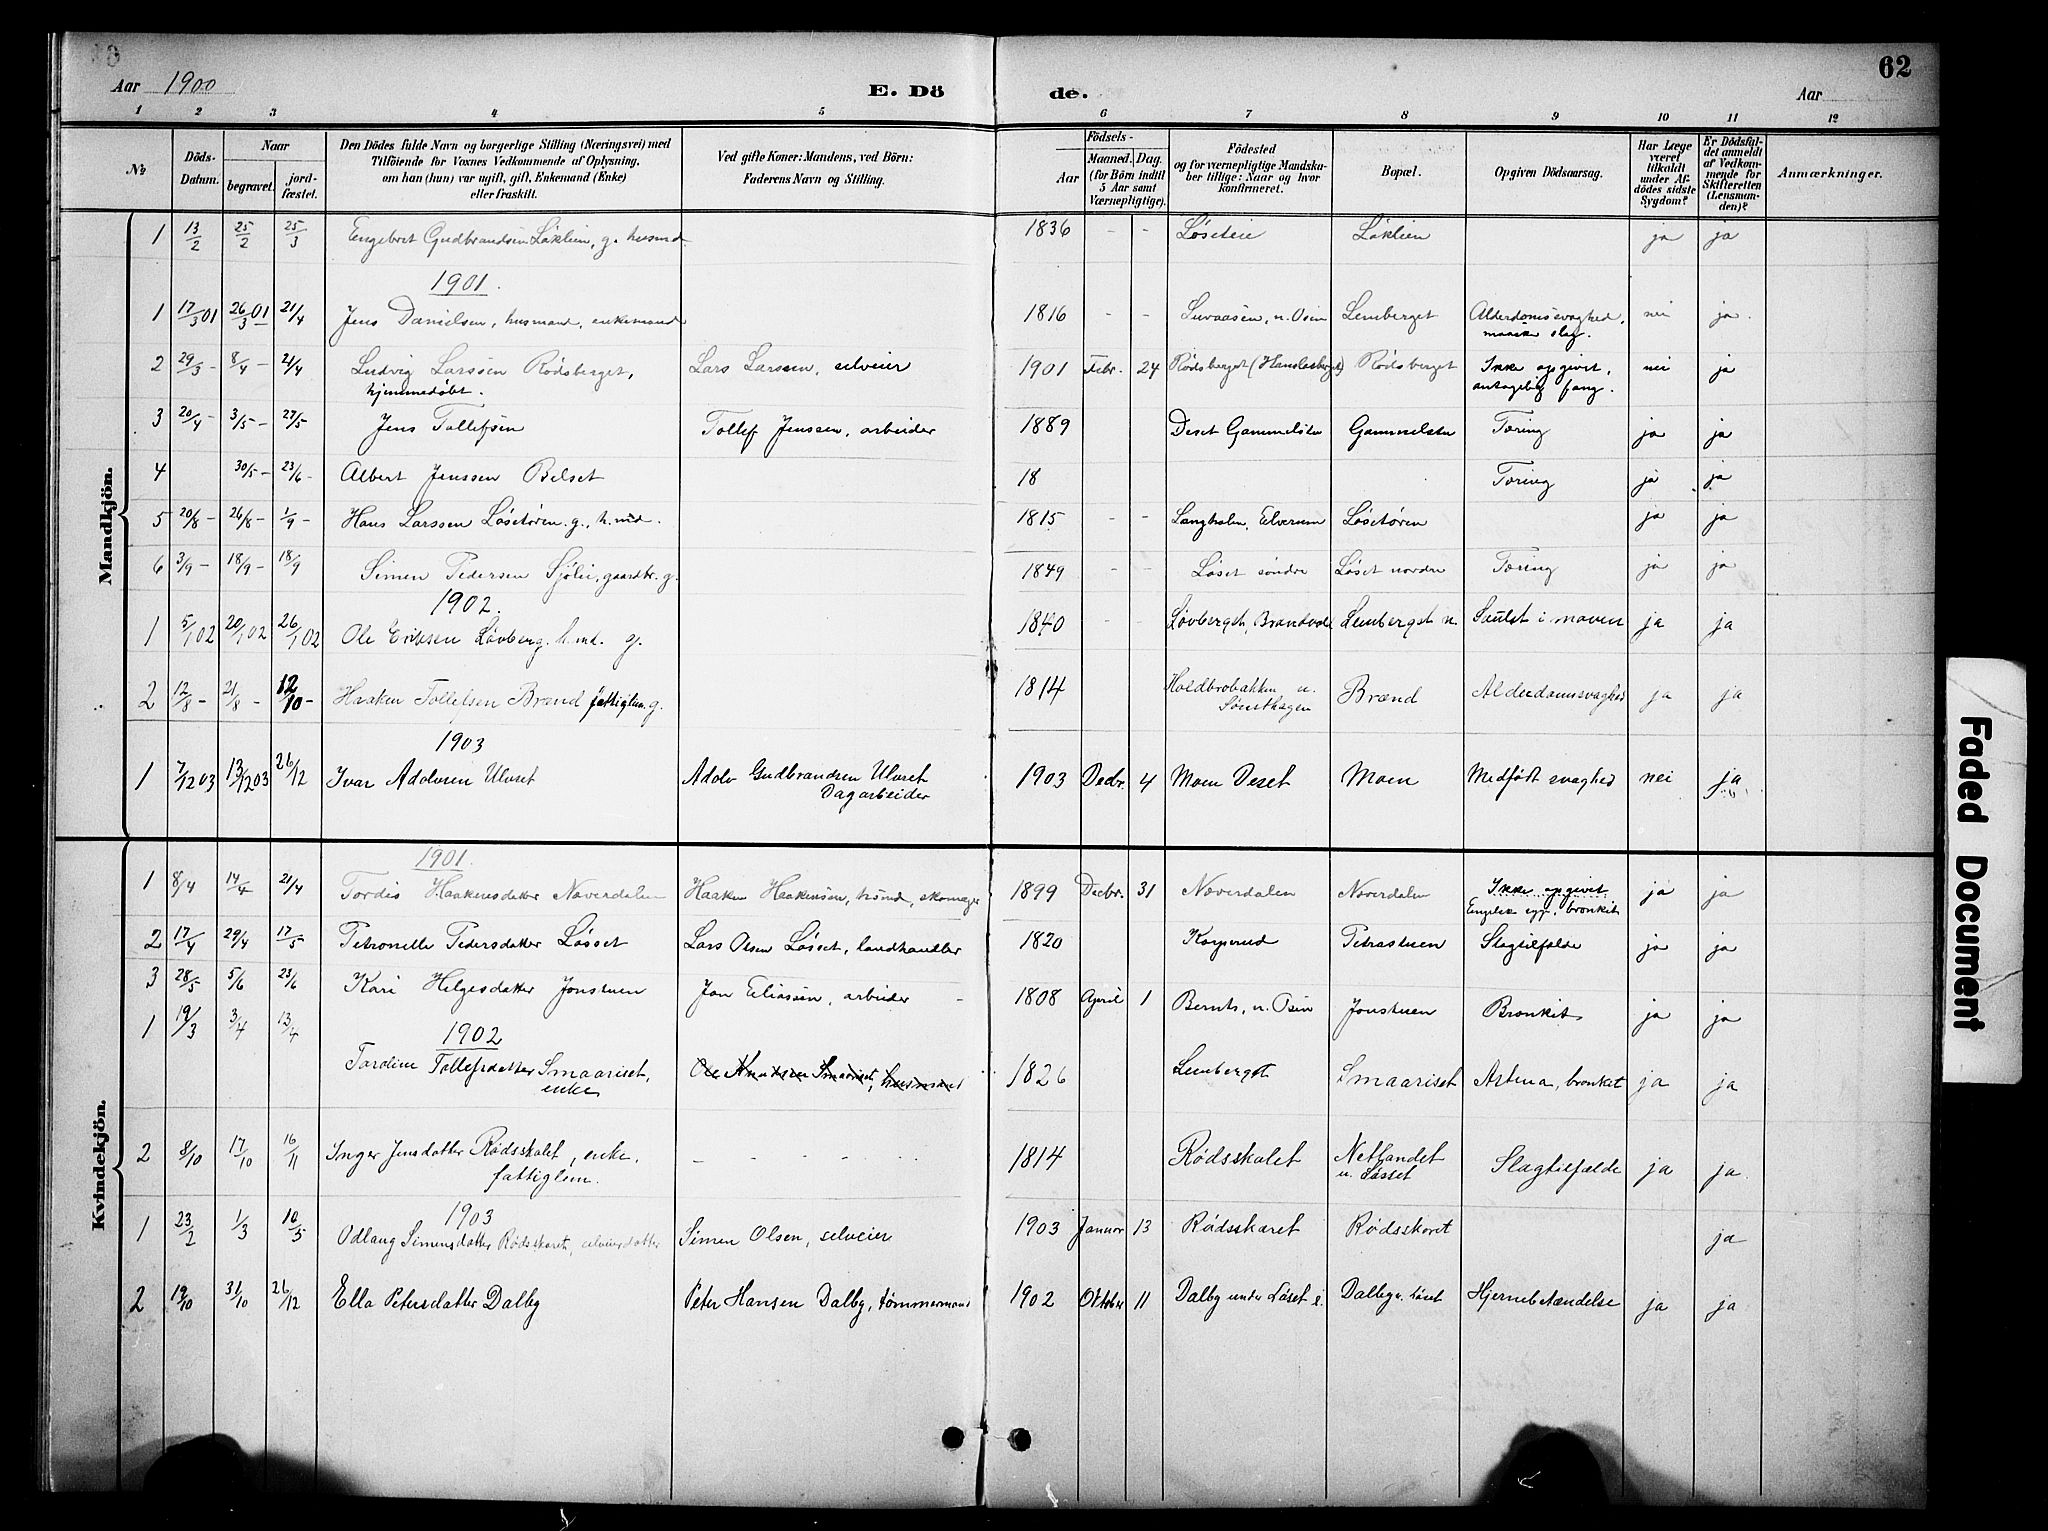 Aar 1900 E. Dö de. Aar 62
1 2 3 4 5 6 7 8 9 10 11 12
No
Döds-
Datum.
Naar
begravet.
jord-
fæstet.
Den Dödes fulde Navn og borgerlige Stilling (Næringsvei) med
Tilföiende for Voxnes Vedkommende af Oplysning,
om han (hun) var ugift, gift, Enkemand (Enke)
eller fraskilt.
Ved gifte Koner: Mandens, ved Börn:
Faderens Navn og Stilling.
Födsels-
Aar
Maaned. Dag.
(for Börn indtil
5 Aar samt
Værnepligtige).
Födested
og for værnepligtige Mandska-
ber tillige: Naar og hvor
konfirmeret.
Bopæl.
Opgiven Dödsaarsag.
Har Læge
været
tilkaldt
under Af-
dödes sidste
Sygdom?
Er Dödsfal-
det anmeldt
af Vedkom-
mende for
Skifteretten
(Lensman-
den)?
Anmærkninger.
Mandkjön.
1 13/2 25/2 25/3 Engebret Gudbrandsen Løklien, g. husmd 1836 - - Løseteie Løklien ja ja
1901.
1 17/3 01 26/3 01 21/4 Jens Danielsen, husmand, enkemand 1816 n. Osen Lemberget Alderdomssvaghed, nei ja.
maaske slag.
2 29/3 - 8/4 - 21/4 Ludvig Larssen Rødsberget, Lars Larssen, selveier 1901 Febr. 24 Rødsberget Rødsberget Ikke opgivet, nei ja
hjemmedøbt. antagelig fang.
3 20/4 - 3/5 - 27/5 Jens Tollefsen Tollef Jenssen, arbeider 1889 Deset Gammelsten Gammelsten Tæring ja ja
4 30/5 - 23/6 - Albert Jenssen Belset 18 Tæring ja ja
5 20/8 - 26/8 - 1/9 - Hans Larssen Løsetøren. g., h.md. 1815 - - Langholen, Elverum Løsetøren ja ja
6 3/9 - 18/9 - 18/9 Simen Pedersen Sjølie, gaardbr. g. 1849 - - Løset søndre Løset nordre Tæring ja ja
1902.
1 5/1 02 20/1 02 26/1 02 Ole Eriksen Løvberg. h.md. g. 1840 Løvberget, Brandvold Lemberget n. Svulst i maven ja ja
2 12/8 - 21/8 - 12/10 - Haaken Tollefsen Brænd fattiglem. g. 1814 Holdbrobakken u. Brænd Alderdomsvaghed ja ja
Sønsthagen
1903
1 7/12 03 13/12 03 26/12 Ivar Adolvsen Ulvset Adolv Gudbrandsen Ulvset 1903 Decbr. 4 Moen Deset Moen Medfødt svaghed nei ja
Dagarbeider
Kvindekjön.
1901.
1 8/4 14/4 21/4 Tordis Haakensdatter Nøverdalen Haaken Haakensen, husmd, skomager 1899 Decbr. 31 Nøverdalen Nøverdalen Ikke opgivet ja ja
Engelsk syge, bronkit
2 17/4 29/4 17/5 Petronelle Pedersdatter Løsset Lars Olsen Løsset, landhandler 1820 Korperud Petrastuen Slagtilfælde ja ja
3 28/5 5/6 23/6 Kari Helgesdatter Jonstuen Jon Eliassen, arbeider - 1808 April 1 Bernts, n. Osen Jonstuen Bronkit ja ja
1902
1 19/3 3/4 13/4 Tordine Tollefsdatter Smaariset, Ole Knudsen Smaariset, husmand 1826 Lemberget Smaariset Astma, bronkit ja ja
enke
2 8/10 17/10 16/11 Inger Jensdatter Rødsskalet, enke, - - - - 1814 Rødsskalet Netlandet Slagtilfælde ja ja.
fattiglem. u. Løsset
1903
1 23/2 1/3 10/5 Odlaug Simensdatter Rødsskaret, selveierdatter Simen Olsen, selveier 1903 Januar 13 Rødsskaret Rødsskaret ja
2 19/10 31/10 26/12 Ella Petersdatter Dalby Peter Hansen Dalby, tømmermand 1902 Oktober 11 Dalby under Løset Dalby u. Løset Hjernebetændelse ja ja
Faded Document